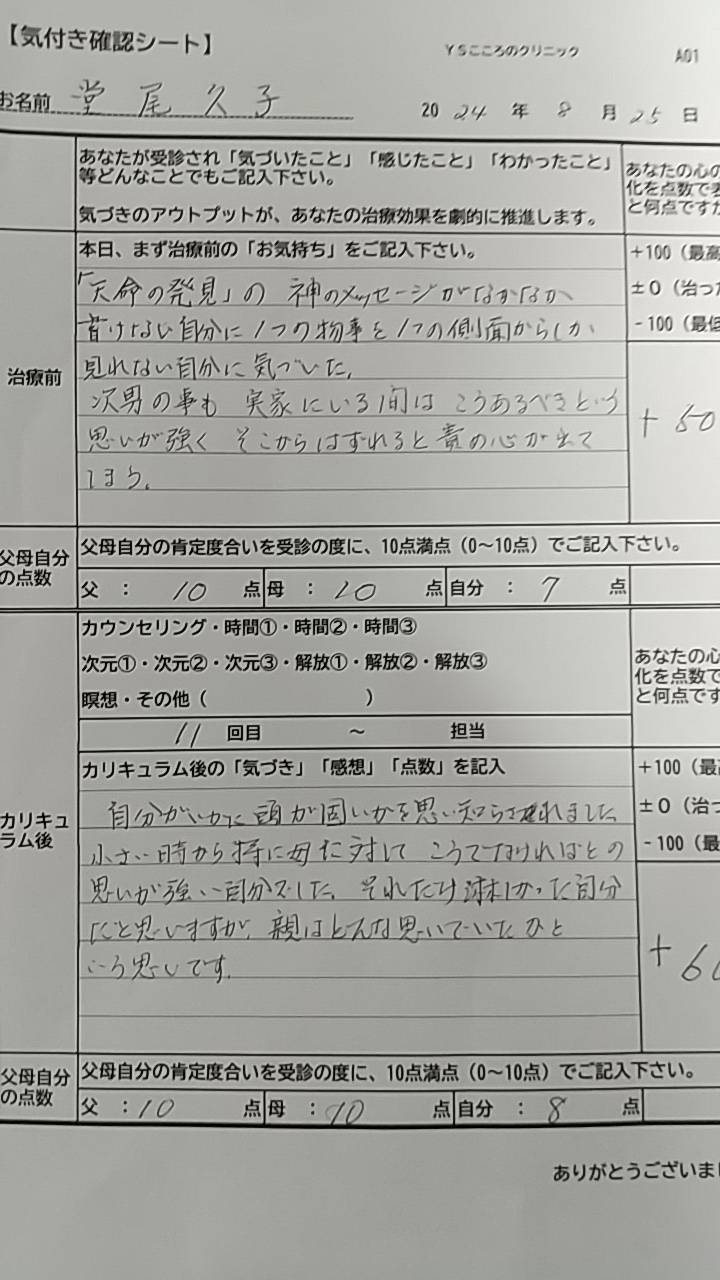 【気付き確認シート】 YSこころのクリニック A01
お名前 堂尾久子 2024年8月25日
あなたが受診され「気づいたこと」「感じたこと」「わかったこと」
等どんなことでもご記入下さい。
気づきのアウトプットが、あなたの治療効果を劇的に推進します。
あなたの心の
化を点数で表
と何点ですか
治療前
本日、まず治療前の「お気持ち」をご記入下さい。
+100(最高
±0(治った
-100(最低
「天命の発見」の 神のメッセージがなかなか
書けない自分に1つの物事を1つの側面からしか
見れない自分に気づいた。
次男の事も 実家にいる間は こうあるべきという
思いが強く そこからはずれると責の心が出て
しまう。
+50
父母自分
の点数
父母自分の肯定度合いを受診の度に、10点満点(0~10点)でご記入下さい。
父:10点 母:10点 自分:7点
カウンセリング・時間①・時間②・時間③
次元①・次元②・次元③・解放①・解放②・解放③
瞑想・その他( )
あなたの心
化を点数で
と何点です
11回目 ~ 担当
カリキュ
ラム後
カリキュラム後の「気づき」「感想」「点数」を記入
+100(最
±0(治っ
-100(最
自分がいかに頭が固いかを思い知らされました
小さい時から特に母に対して こうでなければとの
思いが強い自分でした。それだけ淋しかった自分
だと思いますが、親はどんな思いでいたかと
いう思いです。
+60
父母自分
の点数
父母自分の肯定度合いを受診の度に、10点満点(0~10点)でご記入下さい。
父:10点 母:10点 自分:8点
ありがとうございまし